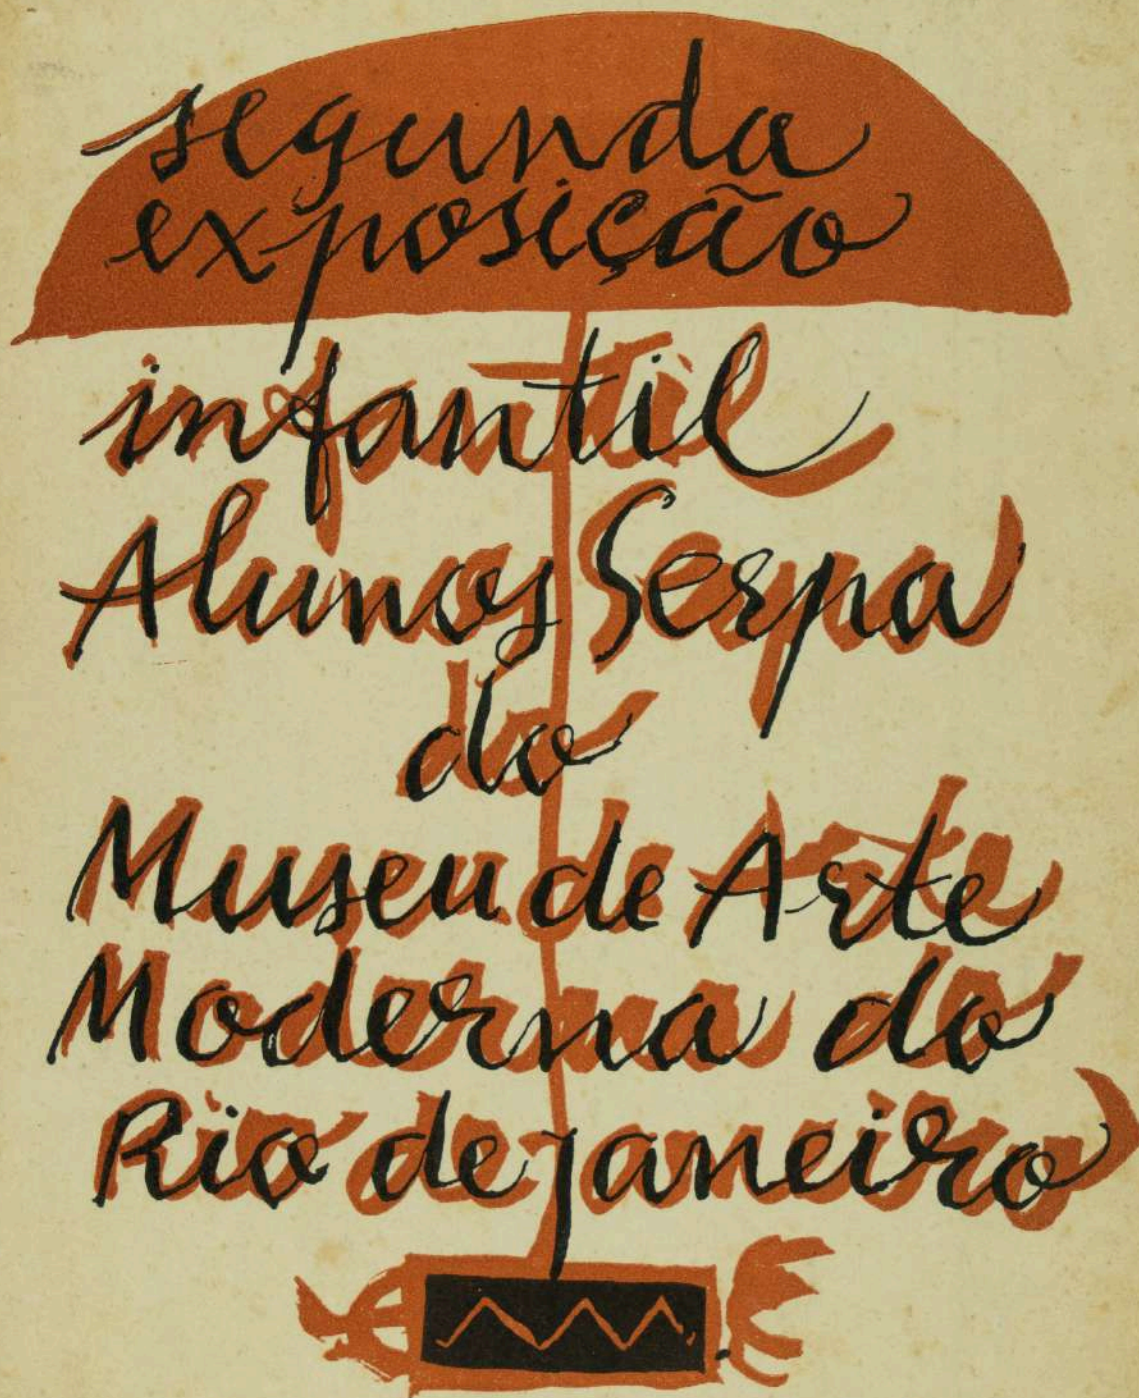 segunda
exposição
infantil
Alunos Serpa
do
Museu de Arte
Moderna do
Rio de janeiro